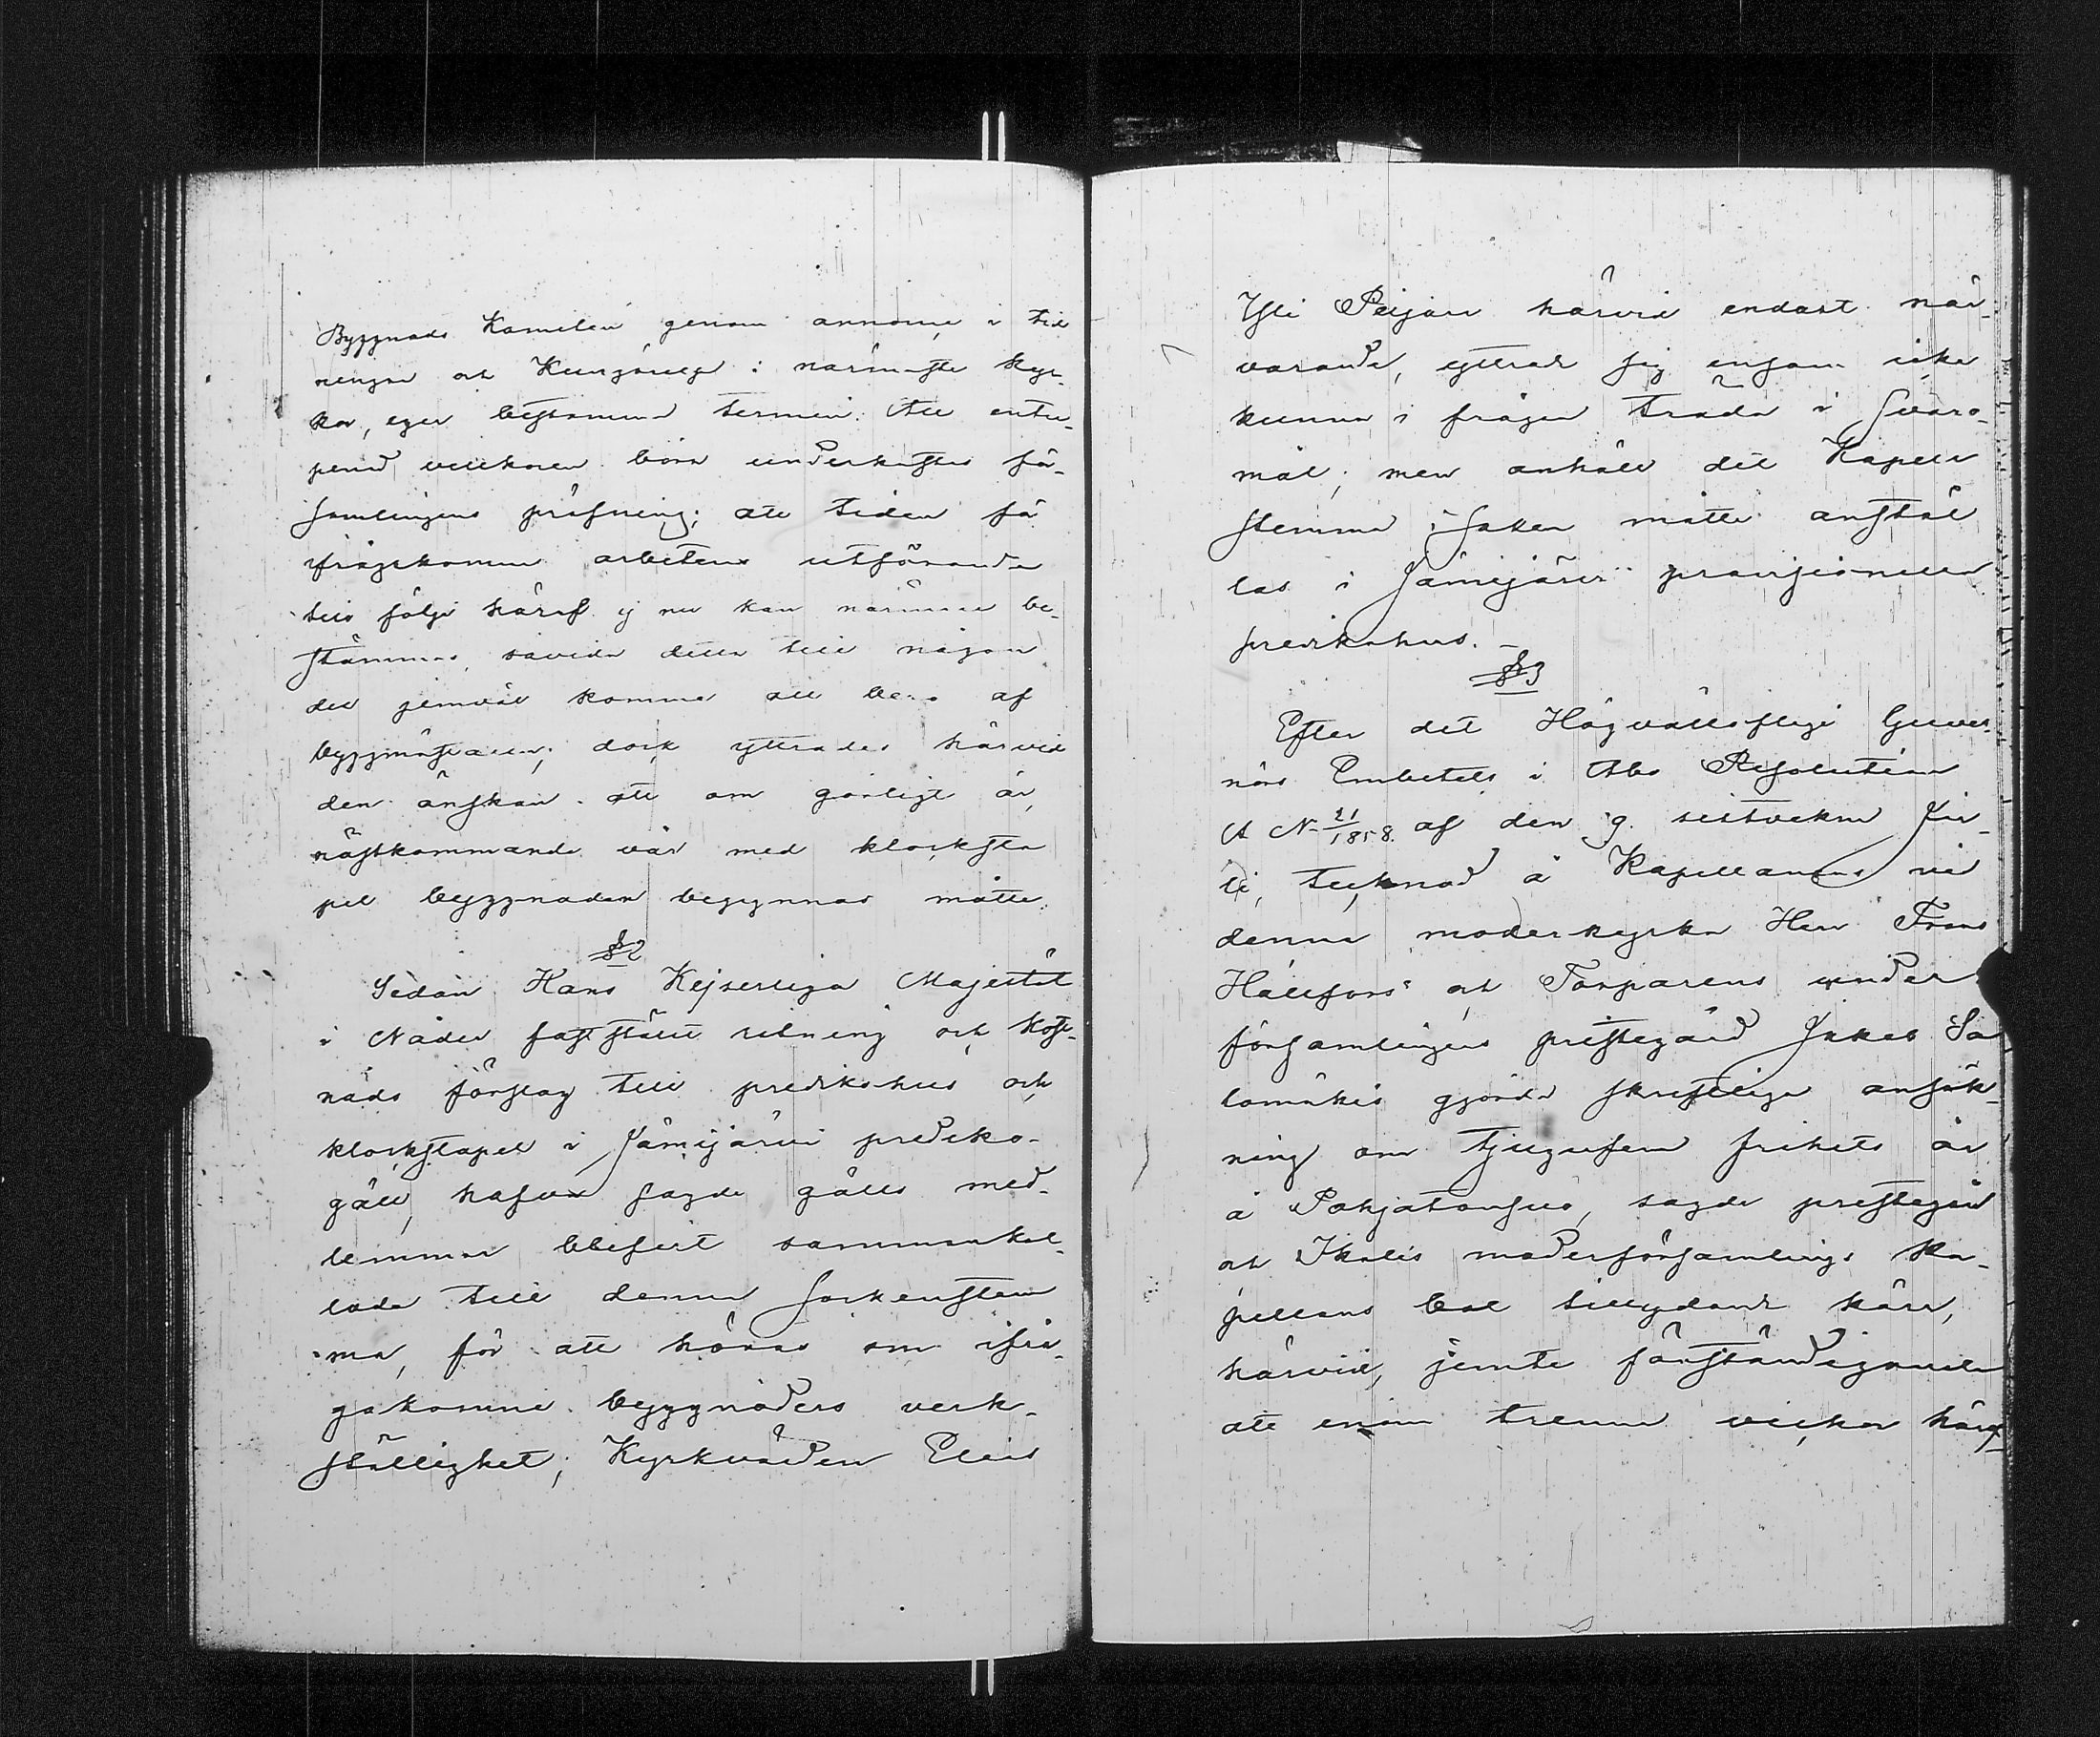 Byggnads Komitén genom annonce i tid
ningar och Kungörelse i närmaste kyr-
kor, eger bestämma termin. Att entre-
penad vilkoren böra underkastas för-
samlingens pröfning; att tiden för
ifrågakomne arbetens utförande
till följe häraf ej nu kan närmare be-
stämmas, såvida detta till någon
del jemväl kommer att bero af
byggmästaren; dock yttrades härvid
den önskan att om görligt är,
nästkommande vår med klocksta
pel byggnaden begynnas måtte.
§ 2
Sedan Hans Kejserliga Majestät
i Nåder fastställt ritning och kost-
nads förslag till predikohus och
klockstapel i Jämijärvi prediko-
gäll, hafva sagde gälls med-
lemmar blifvit sammankal-
lade till denna sockenstäm
ma, för att höras om ifrå-
gakomne byggnaders verk-
ställighet; Kyrkvärden Elias
Yli Peijari härvid endast när-
varande, yttrade sig ensam icke
kunna i frågan träda i svaro-
mål; men anhöll det Kapell
stemma i saken måtte anstäl
las i Jämijärvi provisionella
predikohus. -
§ 3
Efter det Högvällofliga Guver-
nörs Embetets i Åbo Resolution
A No 21/1858. af den 9. sistvekne Ju-
li, tecknad å Kapellanens vid
denna moderkyrka Herr Frans
Hällfors och Torparens under
församlingens prestegård Jakob Sa
lomäkis gjorde skriftliga ansök-
ning om tjugufem frihets år
å Pohjatonsuo, sagde prestegård
och Ikalis moderförsamlings ka-
pellans bol tillydande kärr,
härvid, jemte förständigande
att inom trenne veckor häraf